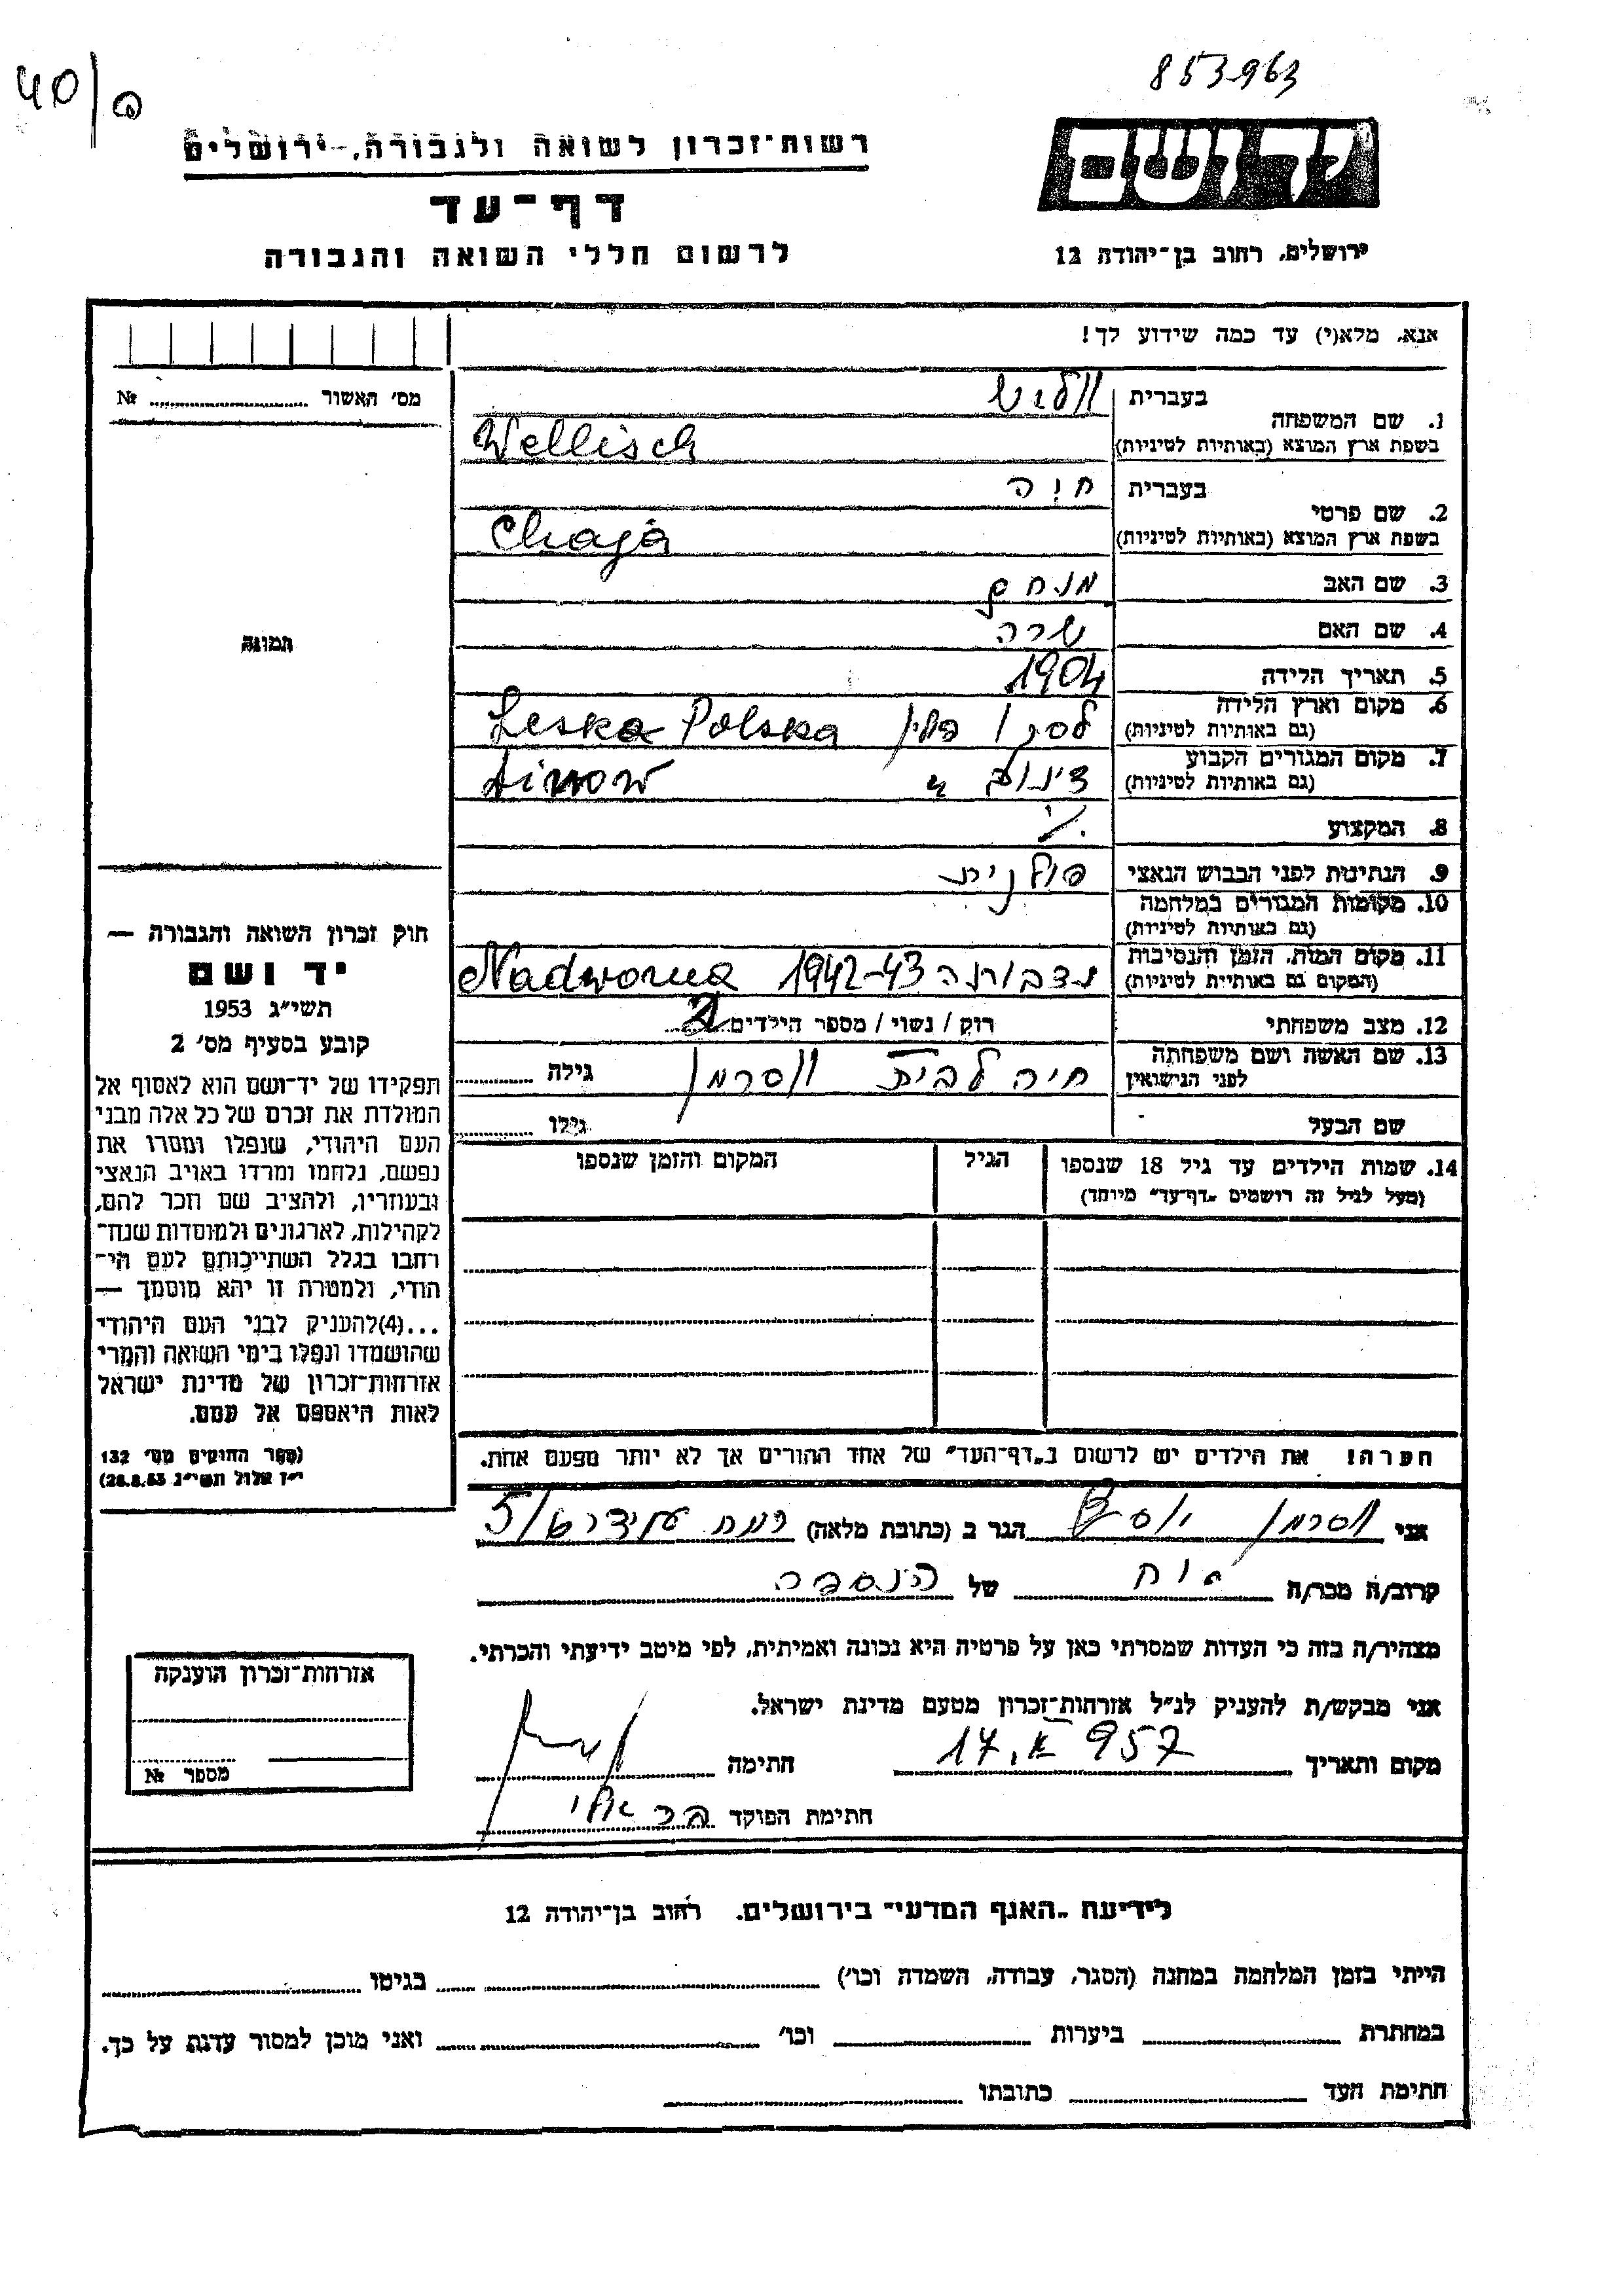 853963
40/
רשות־זכרון לשואה ולגבורה, ירושלים
יד ושם
דף־עד
לרשום חללי השואה והגבורה
ירושלים, רחוב בן־יהודה 12
אנא, מלא(י) עד כמה שידוע לך!
מס׳ האשור № 
1. שם המשפחה
בעברית ווליש
בשפת ארץ המוצא (באותיות לטיניות) Wellisch
2. שם פרטי
בעברית חיה
בשפת ארץ המוצא (באותיות לטיניות) Chaja
3. שם האב מנחם
4. שם האם שרה
תמונה
5. תאריך הלידה 1904
6. מקום וארץ הלידה
(גם באותיות לטיניות) פולין Leska Polska
7. מקום המגורים הקבוע
(גם באותיות לטיניות) דינוב
8. המקצוע ./.
9. הנתינות לפני הכבוש הנאצי פולנית
10. מקומות המגורים במלחמה
(גם באותיות לטיניות)
11. מקום המות, הזמן והנסיבות
(המקום גם באותיות לטיניות) נדבורנה 1942-43 Nadworna
12. מצב משפחתי רוק / נשוי / מספר הילדים 2
13. שם האשה ושם משפחתה
לפני הנישואין חיה לבית ווסרמן גילה
שם הבעל גילו
14. שמות הילדים עד גיל 18 שנספו
(מעל לגיל זה רושמים „דף־עד״ מיוחד)
הגיל
המקום והזמן שנספו
הערה! את הילדים יש לרשום ב„דף־העד״ של אחד ההורים אך לא יותר מפעם אחת.
חוק זכרון השואה והגבורה —
יד ושם
תשי״ג 1953
קובע בסעיף מס׳ 2
תפקידו של יד־ושם הוא לאסוף אל
המולדת את זכרם של כל אלה מבני
העם היהודי, שנפלו ומסרו את
נפשם, נלחמו ומרדו באויב הנאצי
ובעוזריו, ולהציב שם וזכר להם,
לקהילות, לארגונים ולמוסדות שנח־
רבו בגלל השתייכותם לעם הי־
הודי, ולמטרה זו יהא מוסמך —
...(4)להעניק לבני העם היהודי
שהושמדו ונפלו בימי השואה והמרי
אזרחות־זכרון של מדינת ישראל
לאות היאספם אל עמם.
(ספר החוקים מס׳ 132
י״ז אלול תשי״ג 28.8.53)
אני ווסרמן יוסף הגר ב (כתובת מלאה) רמת
קרוב/ה מכר/ה אח של הנספה
מצהיר/ה בזה כי העדות שמסרתי כאן על פרטיה היא נכונה ואמיתית, לפי מיטב ידיעתי והכרתי.
אני מבקש/ת להעניק לנ״ל אזרחות־זכרון מטעם מדינת ישראל.
מקום ותאריך 17. X 957 חתימה
חתימת הפוקד
אזרחות־זכרון הוענקה
מספר №
לידיעת „האגף המדעי״ בירושלים. רחוב בן־יהודה 12
הייתי בזמן המלחמה במחנה (הסגר, עבודה, השמדה וכו׳) בגיטו
במחתרת ביערות וכו׳ ואני מוכן למסור עדות על כך.
חתימת העד כתובתו